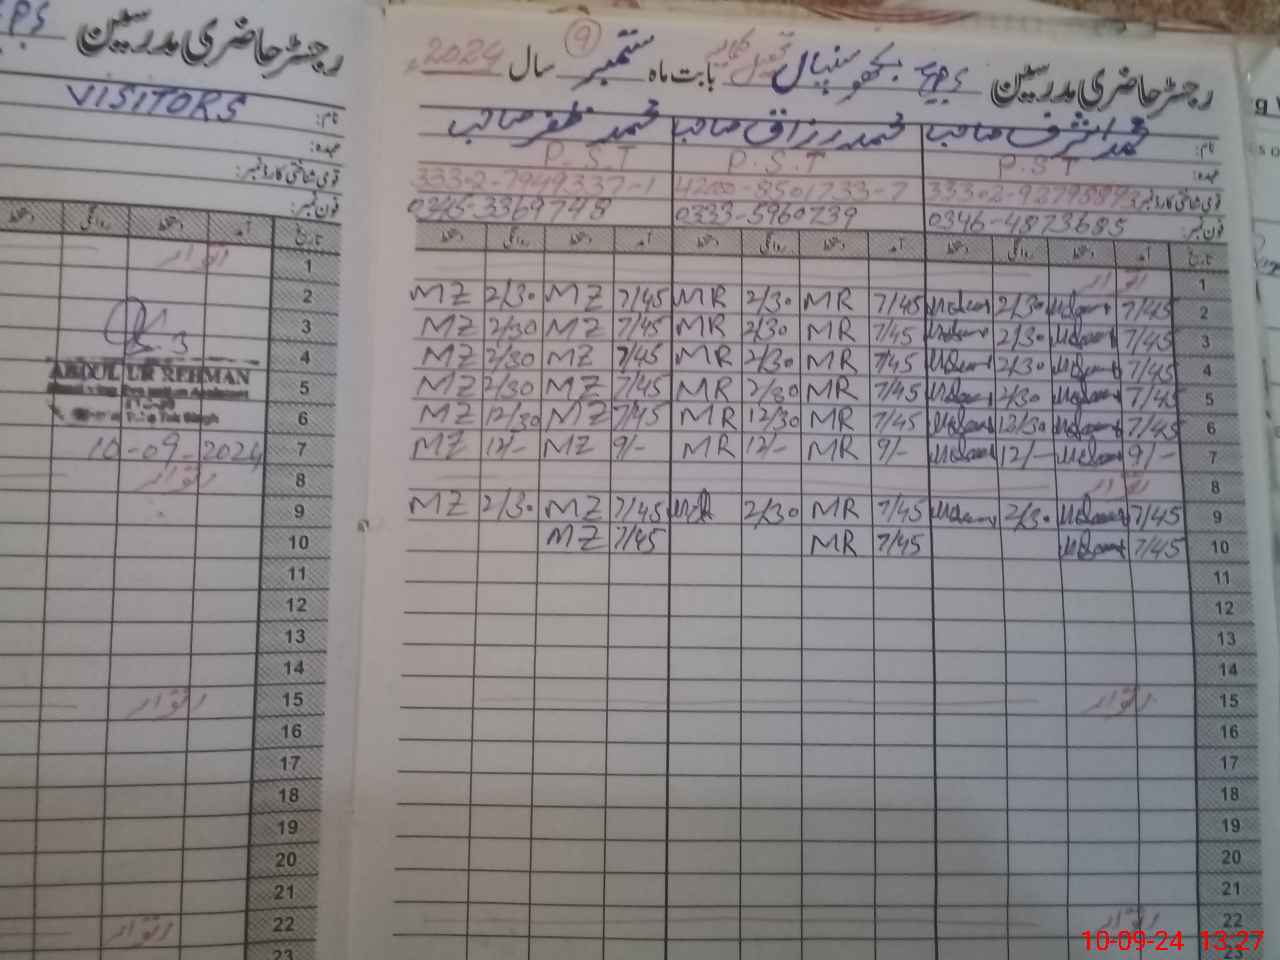 رجسٹر حاضری مدرسین GPS بکھو سنپال بابت ماہ ستمبر 9 سال 2024
نام: محمد اشرف صاحب محمد رزاق صاحب محمد ظفر صاحب
عہدہ: P.S.T P.S.T P.S.T
قومی شناختی کارڈ نمبر: 42000-8501733-7 33302-7949337-1
فون نمبر: 0346-4873685 0333-5960739 0345-3369748
تاریخ آمد دستخط روانگی دستخط آمد دستخط روانگی دستخط آمد دستخط روانگی دستخط
1 اتوار
2 7/45 2/30 7/45 MR 2/30 MR 7/45 MZ 2/30 MZ
3 7/45 2/30 7/45 MR 2/30 MR 7/45 MZ 2/30 MZ
4 7/45 2/30 7/45 MR 2/30 MR 7/45 MZ 2/30 MZ
5 7/45 2/30 7/45 MR 2/30 MR 7/45 MZ 2/30 MZ
6 7/45 12/30 7/45 MR 12/30 MR 7/45 MZ 12/30 MZ
7 9/- 12/- 9/- MR 12/- MR 9/- MZ 12/- MZ
8 اتوار
9 7/45 2/30 7/45 MR 2/30 MR 7/45 MZ 2/30 MZ
10 7/45 7/45 MR 7/45 MZ
11
12
13
14
15 اتوار
16
17
18
19
20
21
22 اتوار
23
رجسٹر حاضری مدرسین GPS
نام: VISITORS
عہدہ:
قومی شناختی کارڈ نمبر:
فون نمبر:
تاریخ آمد دستخط روانگی دستخط
1 اتوار
2
3
4 ABDUL UR REHMAN
5
6
7 10-09-2024
8 اتوار
9
10
11
12
13
14
15 اتوار
16
17
18
19
20
21
22 اتوار
23
10-09-24 13:27